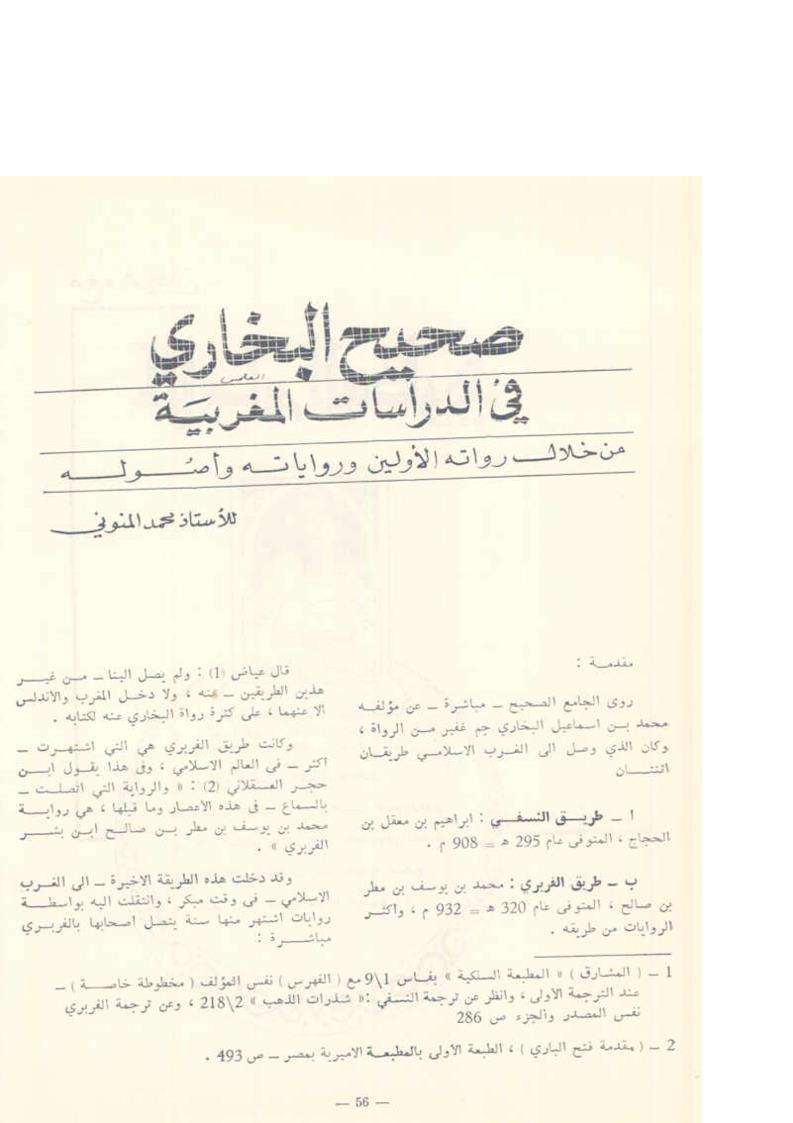 صحيح البخاري
في الدراسات المغربية
من خلال رواته الأولين ورواياته وأصوله
للأستاذ محمد المنوني
مقدمة :
روى الجامع الصحيح — مباشرة — عن مؤلفه
محمد بن اسماعيل البخاري جم غفير من الرواة ،
وكان الذي وصل الى الغرب الاسلامي طريقان
اثنتان
ا — طريق النسفي : ابراهيم بن معقل بن
الحجاج ، المتوفى عام 295 هـ = 908 م .
ب — طريق الفربري : محمد بن يوسف بن مطر
بن صالح ، المتوفى عام 320 هـ = 932 م ، واكثر
الروايات من طريقه .
قال عياض (1) : ولم يصل الينا — من غير
هذين الطريقين — عنه ، ولا دخل المغرب والاندلس
الا عنهما ، على كثرة رواة البخاري عنه لكتابه .
وكانت طريق الفربري هي التي اشتهرت —
اكثر — في العالم الاسلامي ، وفي هذا يقول ابن
حجر العسقلاني (2) : « والرواية التي اتصلت —
بالسماع — في هذه الأعصار وما قبلها ، هي رواية
محمد بن يوسف بن مطر بن صالح ابن بشر
الفربري » .
وقد دخلت هذه الطريقة الاخيرة — الى الغرب
الاسلامي — في وقت مبكر ، وانتقلت اليه بواسطة
روايات اشتهر منها ستة يتصل اصحابها بالفربري
مباشرة :
1 — ( المشارق ) « المطبعة السلكية » بفاس 1\9 مع ( الفهرس ) نفس المؤلف ( مخطوطة خاصة ) —
عند الترجمة الأولى ، وانظر عن ترجمة النسفي :« شذرات الذهب » 2\218 ، وعن ترجمة الفربري
نفس المصدر والجزء ص 286
2 — ( مقدمة فتح الباري ) ، الطبعة الأولى بالمطبعة الاميرية بمصر — ص 493 .
— 56 —